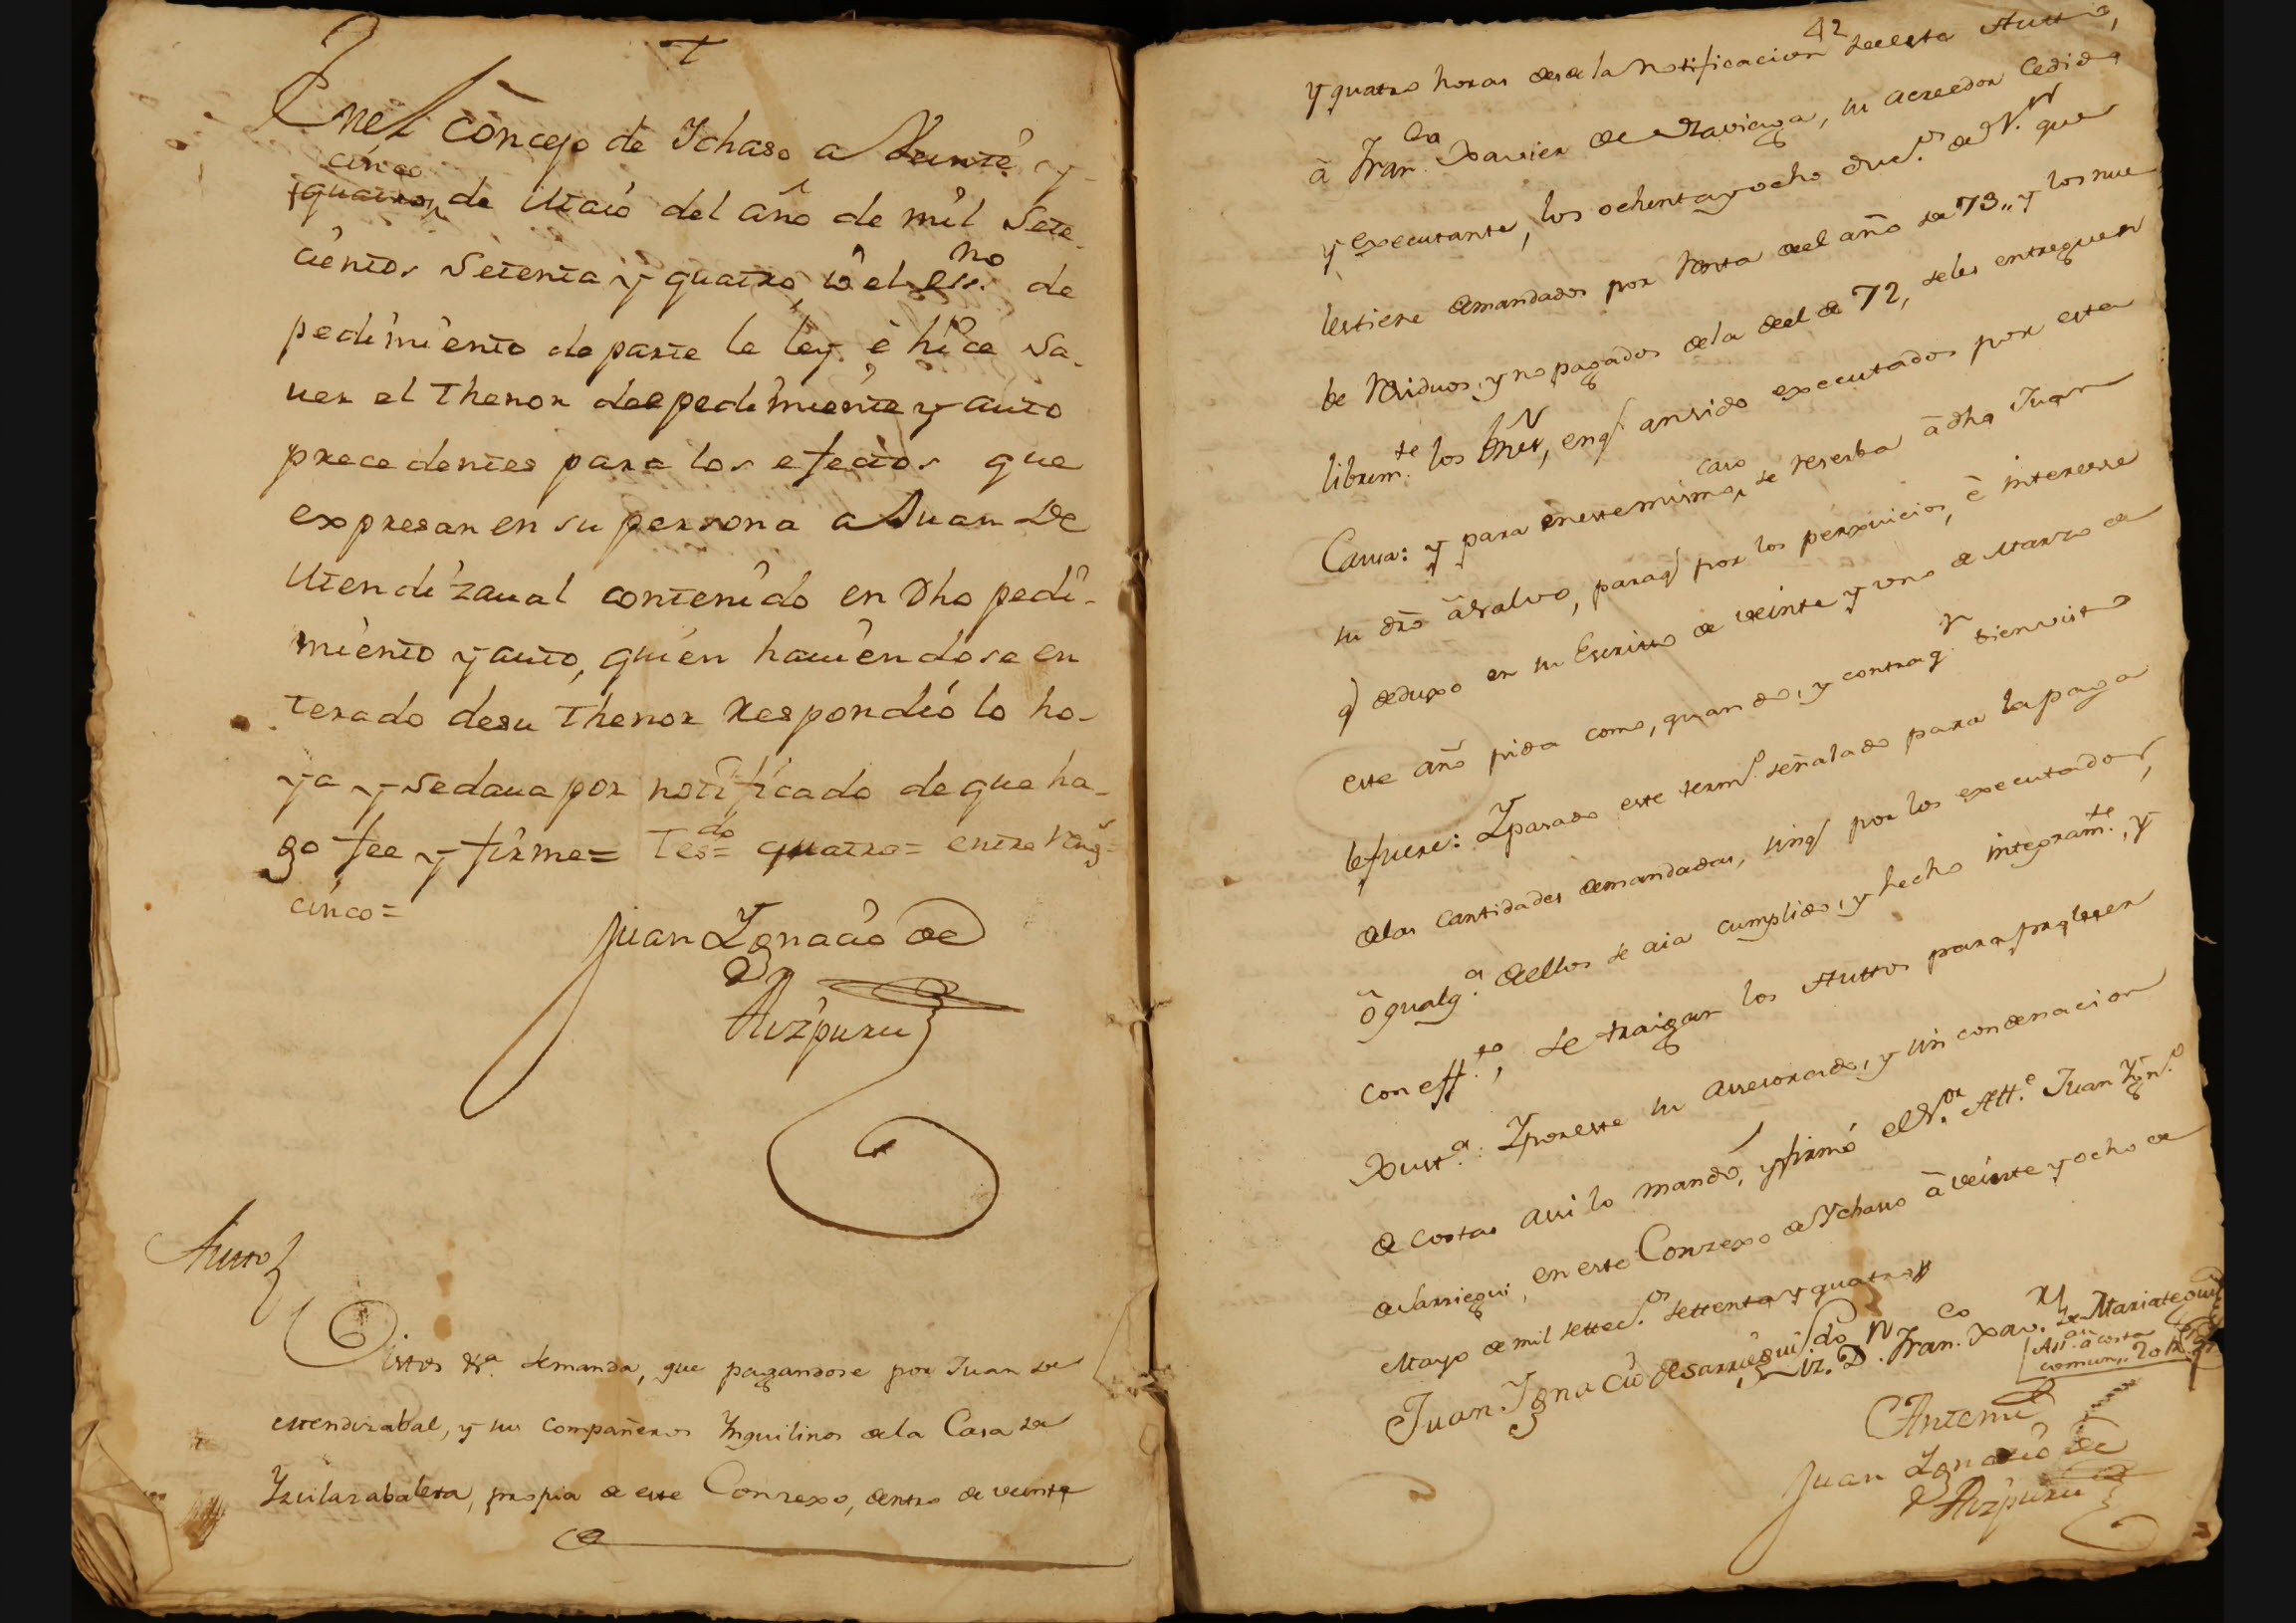 En el Concejo de Ichaso a Veinte y
cinco
quatro, de Maio del año de mil Sete-
cientos Setenta y quatro, io el essno de
pedimiento de parte le ley è hice Sa-
uer el Thenor del pedimiento y auto
precedentes para los efectos que
expresan en su persona a Juan De
Mendizaual contenido en Dho pedi-
miento y auto, quien hauiendose en
terado desu Thenor Respondió lo ho-
ya y sedaua por notificado de que ha-
go fee y firme = Tesdo = quatro = entre Rengs =
cinco =
Juan Ignacio de
Aizpuru
Autto
Vistos esta demanda, que pagandose por Juan de
Mendizabal, y sus compañeros Ynquilinos de la Casa de
Yzuilarabalesa, propia de este Conzexo, dentro de veinte
42
y quatro horas desde la notificacion de este Autto,
à Franco Xavier de Naviega, su acreedor Cedido
y executante, los ochenta y ocho ducos de Vn que
lestiene demandados por Renta del año de 73,, y los nue
be Residuos, y no pagados de la del de 72, se les entreguen
libremte los , en q an sido executados por esta
Causa: y para en este mismo caso, se reserba à dho Juan
su dro à salvo, para q por los perxuicios, è interesse
q deduxo en su Escrito de veinte y uno de Marzo de
este año pida como, quando, y contra qn bien visto
le fuere: Y pasado este termo señalado para la paga
de las Cantidades demandadas, sin q por los executados,
ò qualqa dellos se aia cumplido, y hecho integramte, y
con effto, se traigan los Auttos para proveer
Xusta: Y por este su assesorado, y sin condenacion
de costas assi lo mandó, y firmó el Sor Atte Juan Ygno
de Sarriegui, en este Conzexo de Ychasso à veinte y ocho de
Mayo de mil settecos settenta y quatro
Juan Ignacio de Sarriegui Lizdo Dn Franco Xavr de Mariategui
Assa à costa
comun,, 20 Rs
Antemi
Juan Ignacio de
Aizpuru